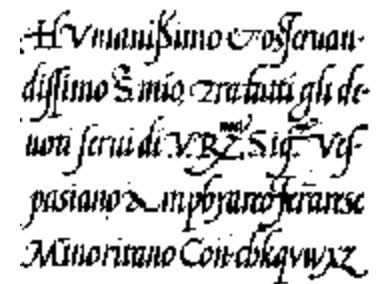 Humanissimo & osseruan-
dissimo S. mio, Tra tutti gli de-
uoti serui di V. R.ma Sig. Ves-
pasiano Amphyareo ferrarese
Minoritano Con- cbkqvwxz